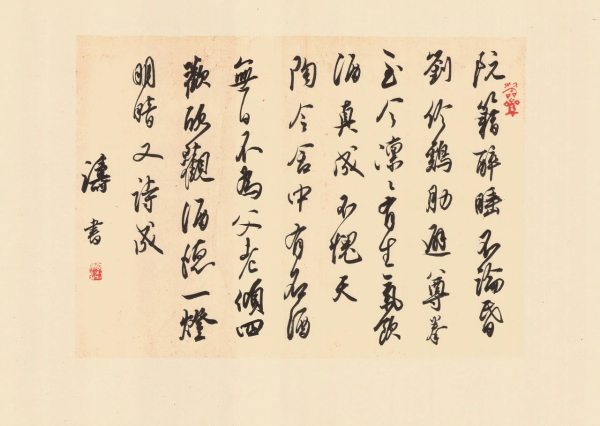 阮籍醉睡不論昏
劉伶鷄肋避尊拳
至今凜〻有生氣飲
酒真成不愧天
陶令舍中有名酒
無日不為父老傾四
歡欣觀酒德一燈
明暗又詩成
濤書